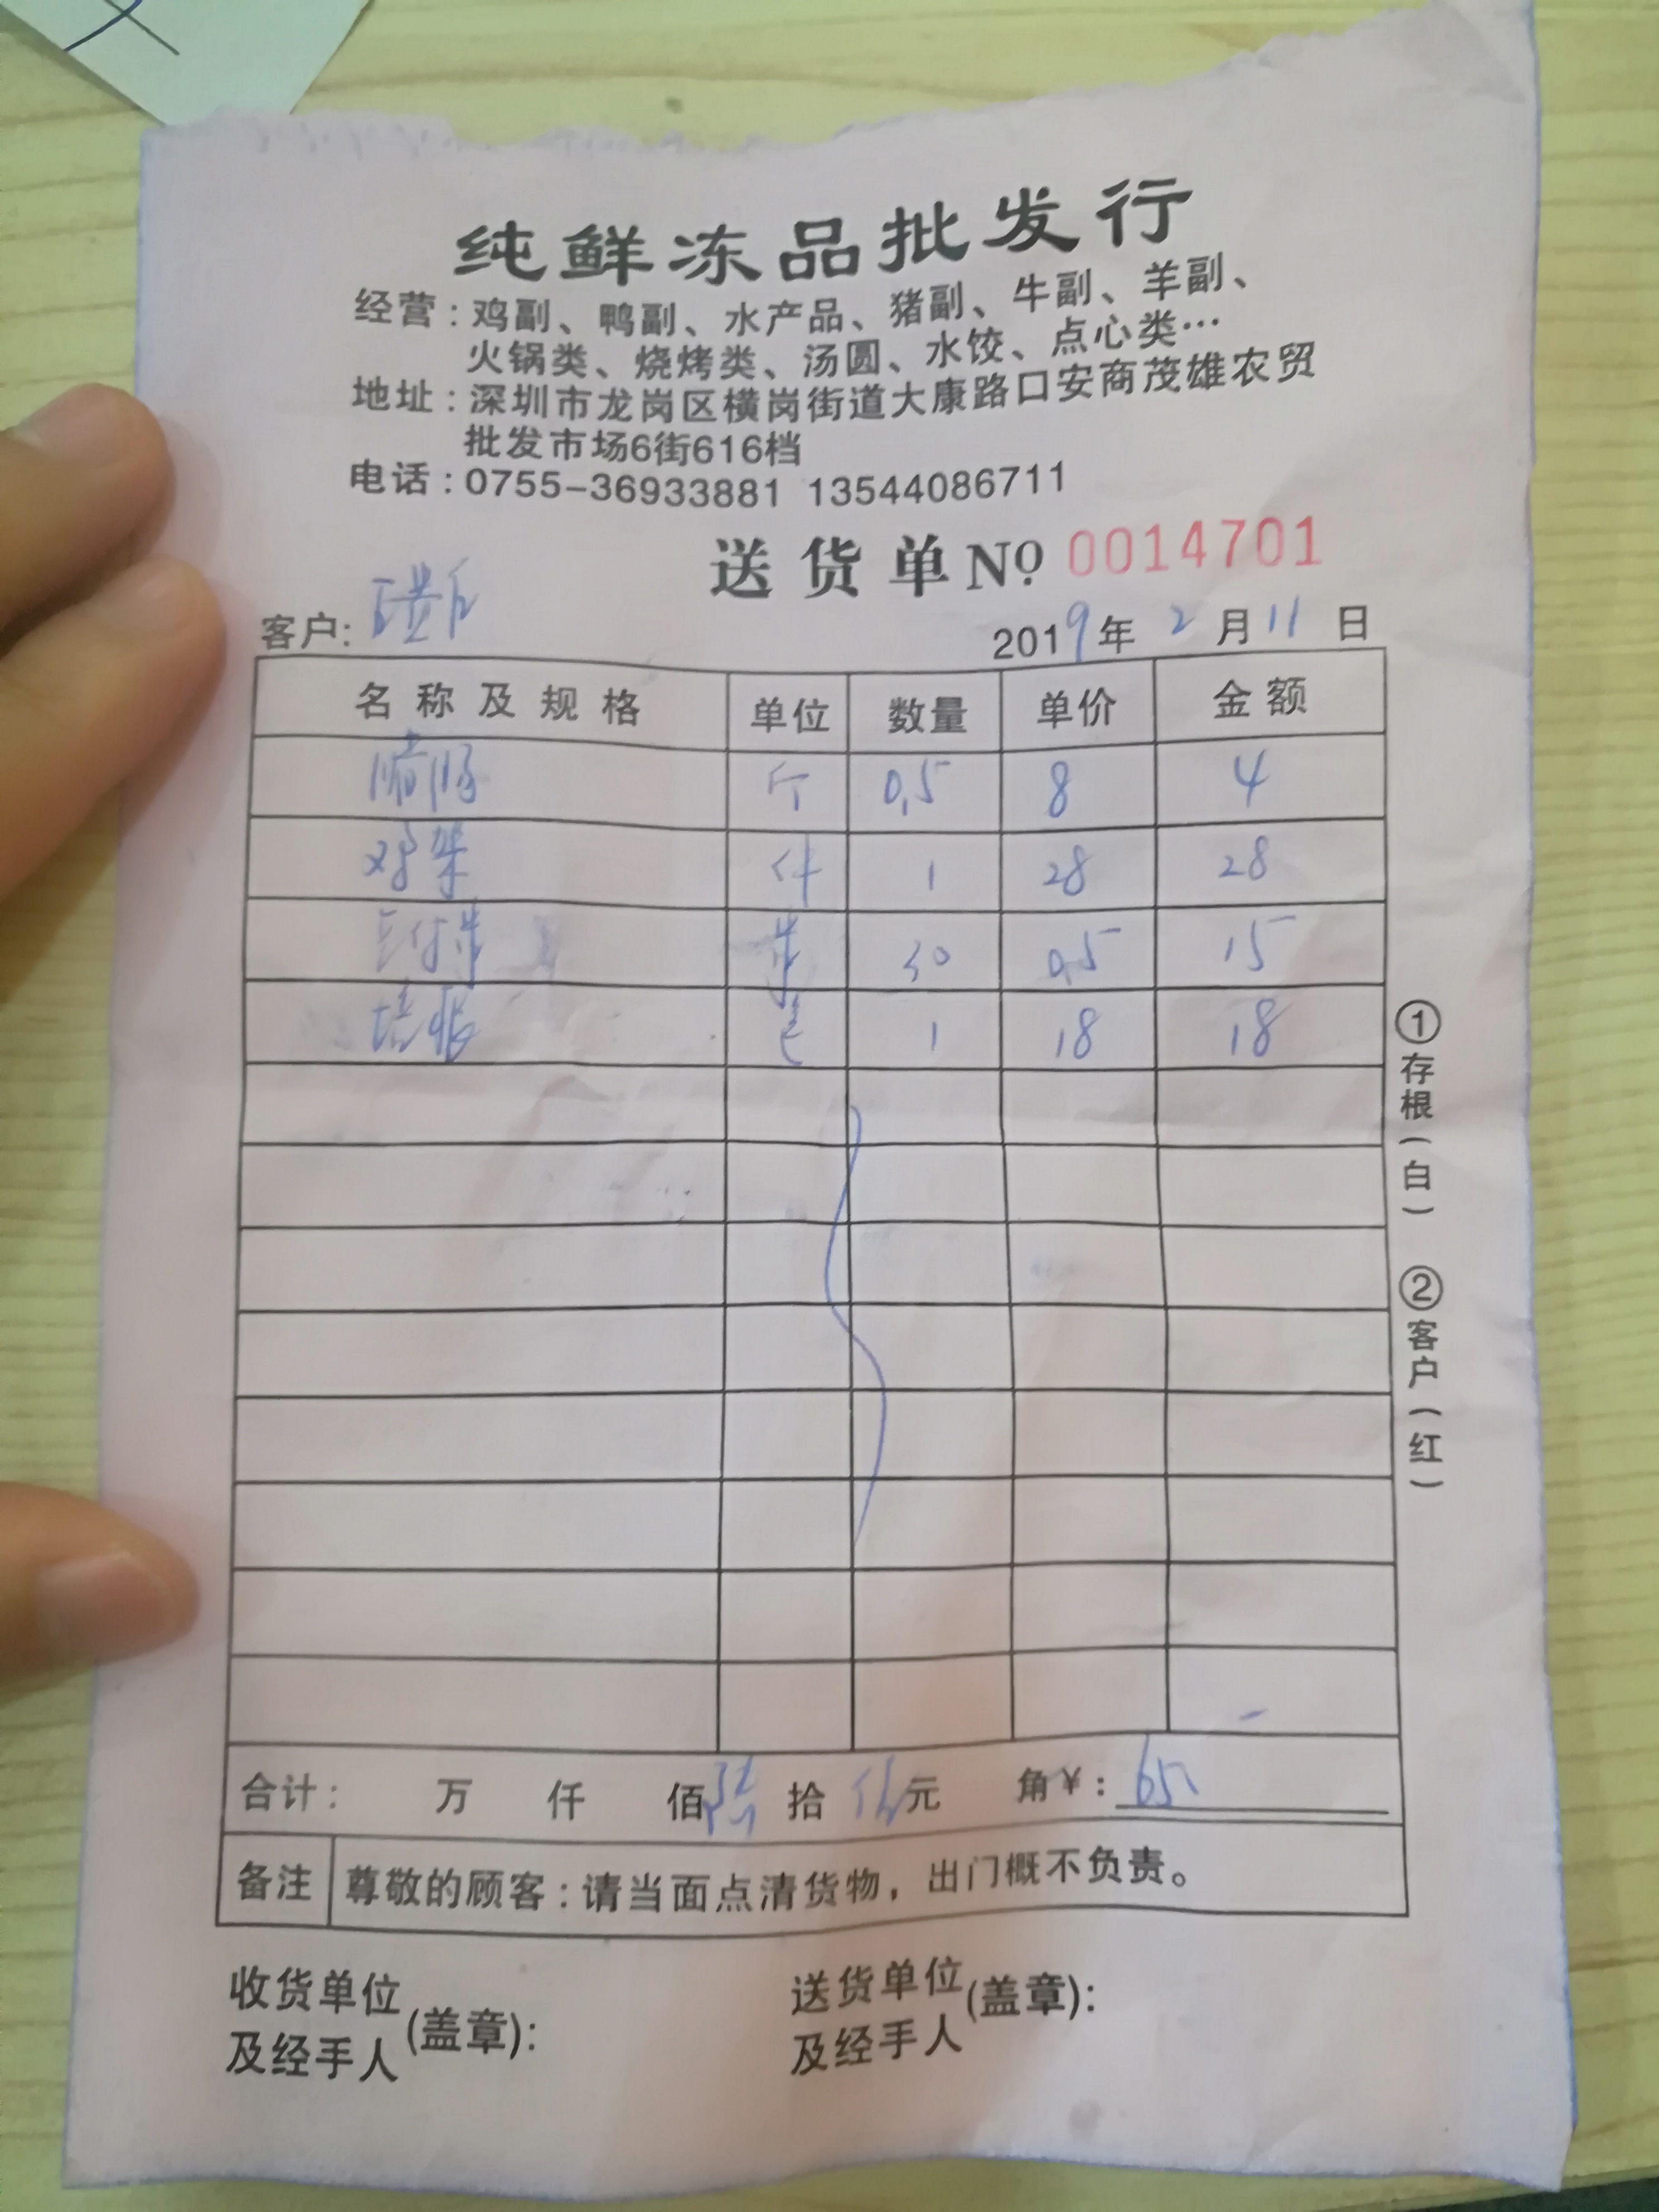 纯鲜冻品批发行
经营：鸡副、鸭副、水产品、猪副、牛副、羊副、
火锅类、烧烤类、汤圆、水饺、点心类…
地址：深圳市龙岗区横岗街道大康路口安商茂雄农贸
批发市场6街616档
电话：0755-36933881 13544086711
送货单 No 0014701
客户：
2019年 2月11日
名称及规格 单位 数量 单价 金额
腊肠 斤 0.5 8 4
鸡架 件 1 28 28
30 0.5 15
培根 包 1 18 18
合计： 万 仟 佰 陆拾 伍元 角¥：65
备注 尊敬的顾客：请当面点清货物，出门概不负责。
收货单位及经手人(盖章)：
送货单位及经手人(盖章)：
①存根(白) ②客户(红)